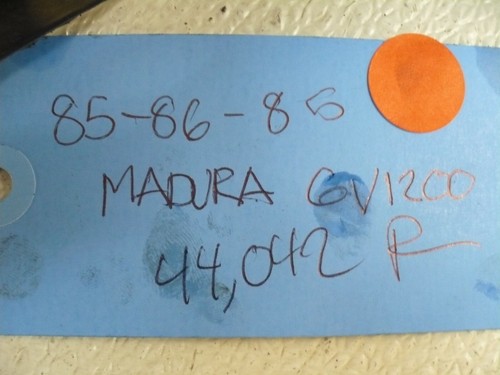 85-86-86
MADURA GV1200
44,042 R